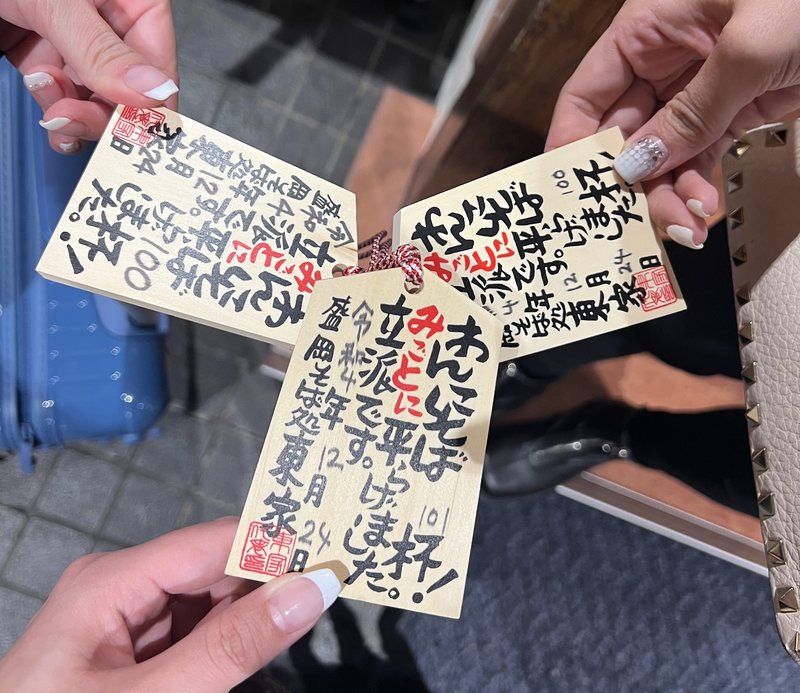 わんこそば 100 杯!
みごとに平らげました。
立派です。
令和4年12月24日
盛岡そば処東家
わんこそば 100 杯!
みごとに平らげました。
立派です。
4年12月24日
岡そば処東家
わんこそば 101 杯!
みごとに平らげました。
立派です。
令和4年12月24日
盛岡そば処東家